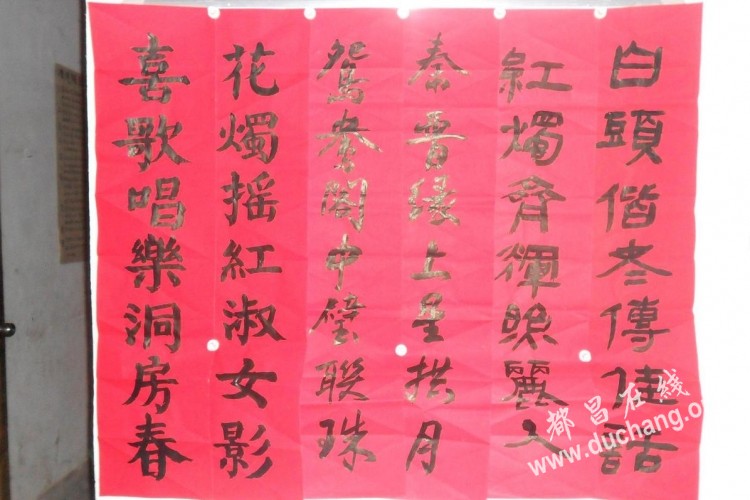 白頭偕老傳佳話
紅燭齊輝照麗人
秦晉缘上星拱月
鴛鴦閣中璧聯珠
花燭摇紅淑女影
喜歌唱樂洞房春
都昌在线
www.duchang.o